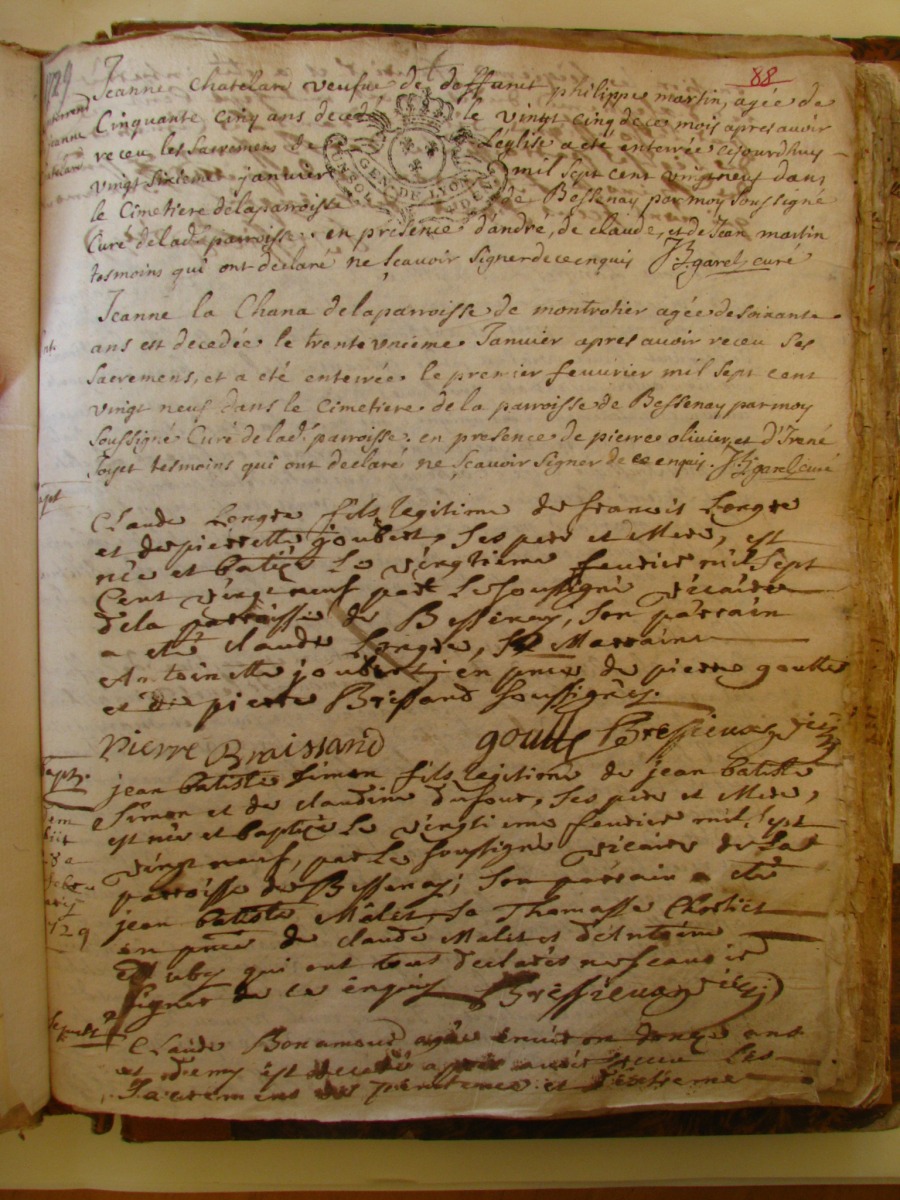 88
Jeanne Chatelan veufve de deffunct philippe martin, agée de
Cinquante cinq ans decedé le vingt cinq de ce mois apres avoir
receu les Sacremens de Leglise a eté enterrée ce jourdhuy
vingt sixieme janvier mil sept cent vingt neuf dans
le Cimetiere de la parroisse de Bessenay par moy Soussigné
Curé de lad. parroisse. en presence d'andre, de claude, et de Jean martin
tesmoins qui ont declaré ne sçavoir signer de ce enquis garel curé
GEN DE LYON
Jeanne la Chana de la parroisse de montrotier agée de soixante
ans est decedée le trente unieme Janvier apres avoir receu Ses
Sacremens, et a eté enterrée le premier fevurier mil sept cent
vingt neuf dans le Cimetiere de la parroisse de Bessenay par moy
Soussigné Curé de lad. parroisse. en presence de pierre olivier et d'Irené
tesmoins qui ont declaré ne sçavoir signer de ce enquis. garel curé
Claude Longre fils legitime de francois Longre
et de pierrette joubert, Ses pere et Mere, est
née et batizé Le vingtieme feurier mil Sept
Cent vingt neuf par Le soussigné vicaire
de la parroisse de Bessenay, Son parrain
a eté claude Longre, Sa Marraine
Antoinette joubert, en pnce de pierre goutte
et de pierre Brissand soussignés.
Pierre Braissand goutte Bressieuay
jean batiste Simon fils legitime de jean batiste
Simon et de claudine dufour, Ses pere et Mere,
est née et baptizé Le vingtieme feurier mil Sept
vingt neuf, par Le soussigné vicaire de La
parroisse de Bessenay; Son parrain a eté
jean batiste Malet Sa Thomasse
en pnce de claude Malet et d'Antoine
qui ont tous declarés ne scauoir
signer de ce enquis Bressieuay
Claude Bonamour agée enuiron douze ans
et demy est decedé apres avoir receu Les
Sacremens de penitence et d'extreme